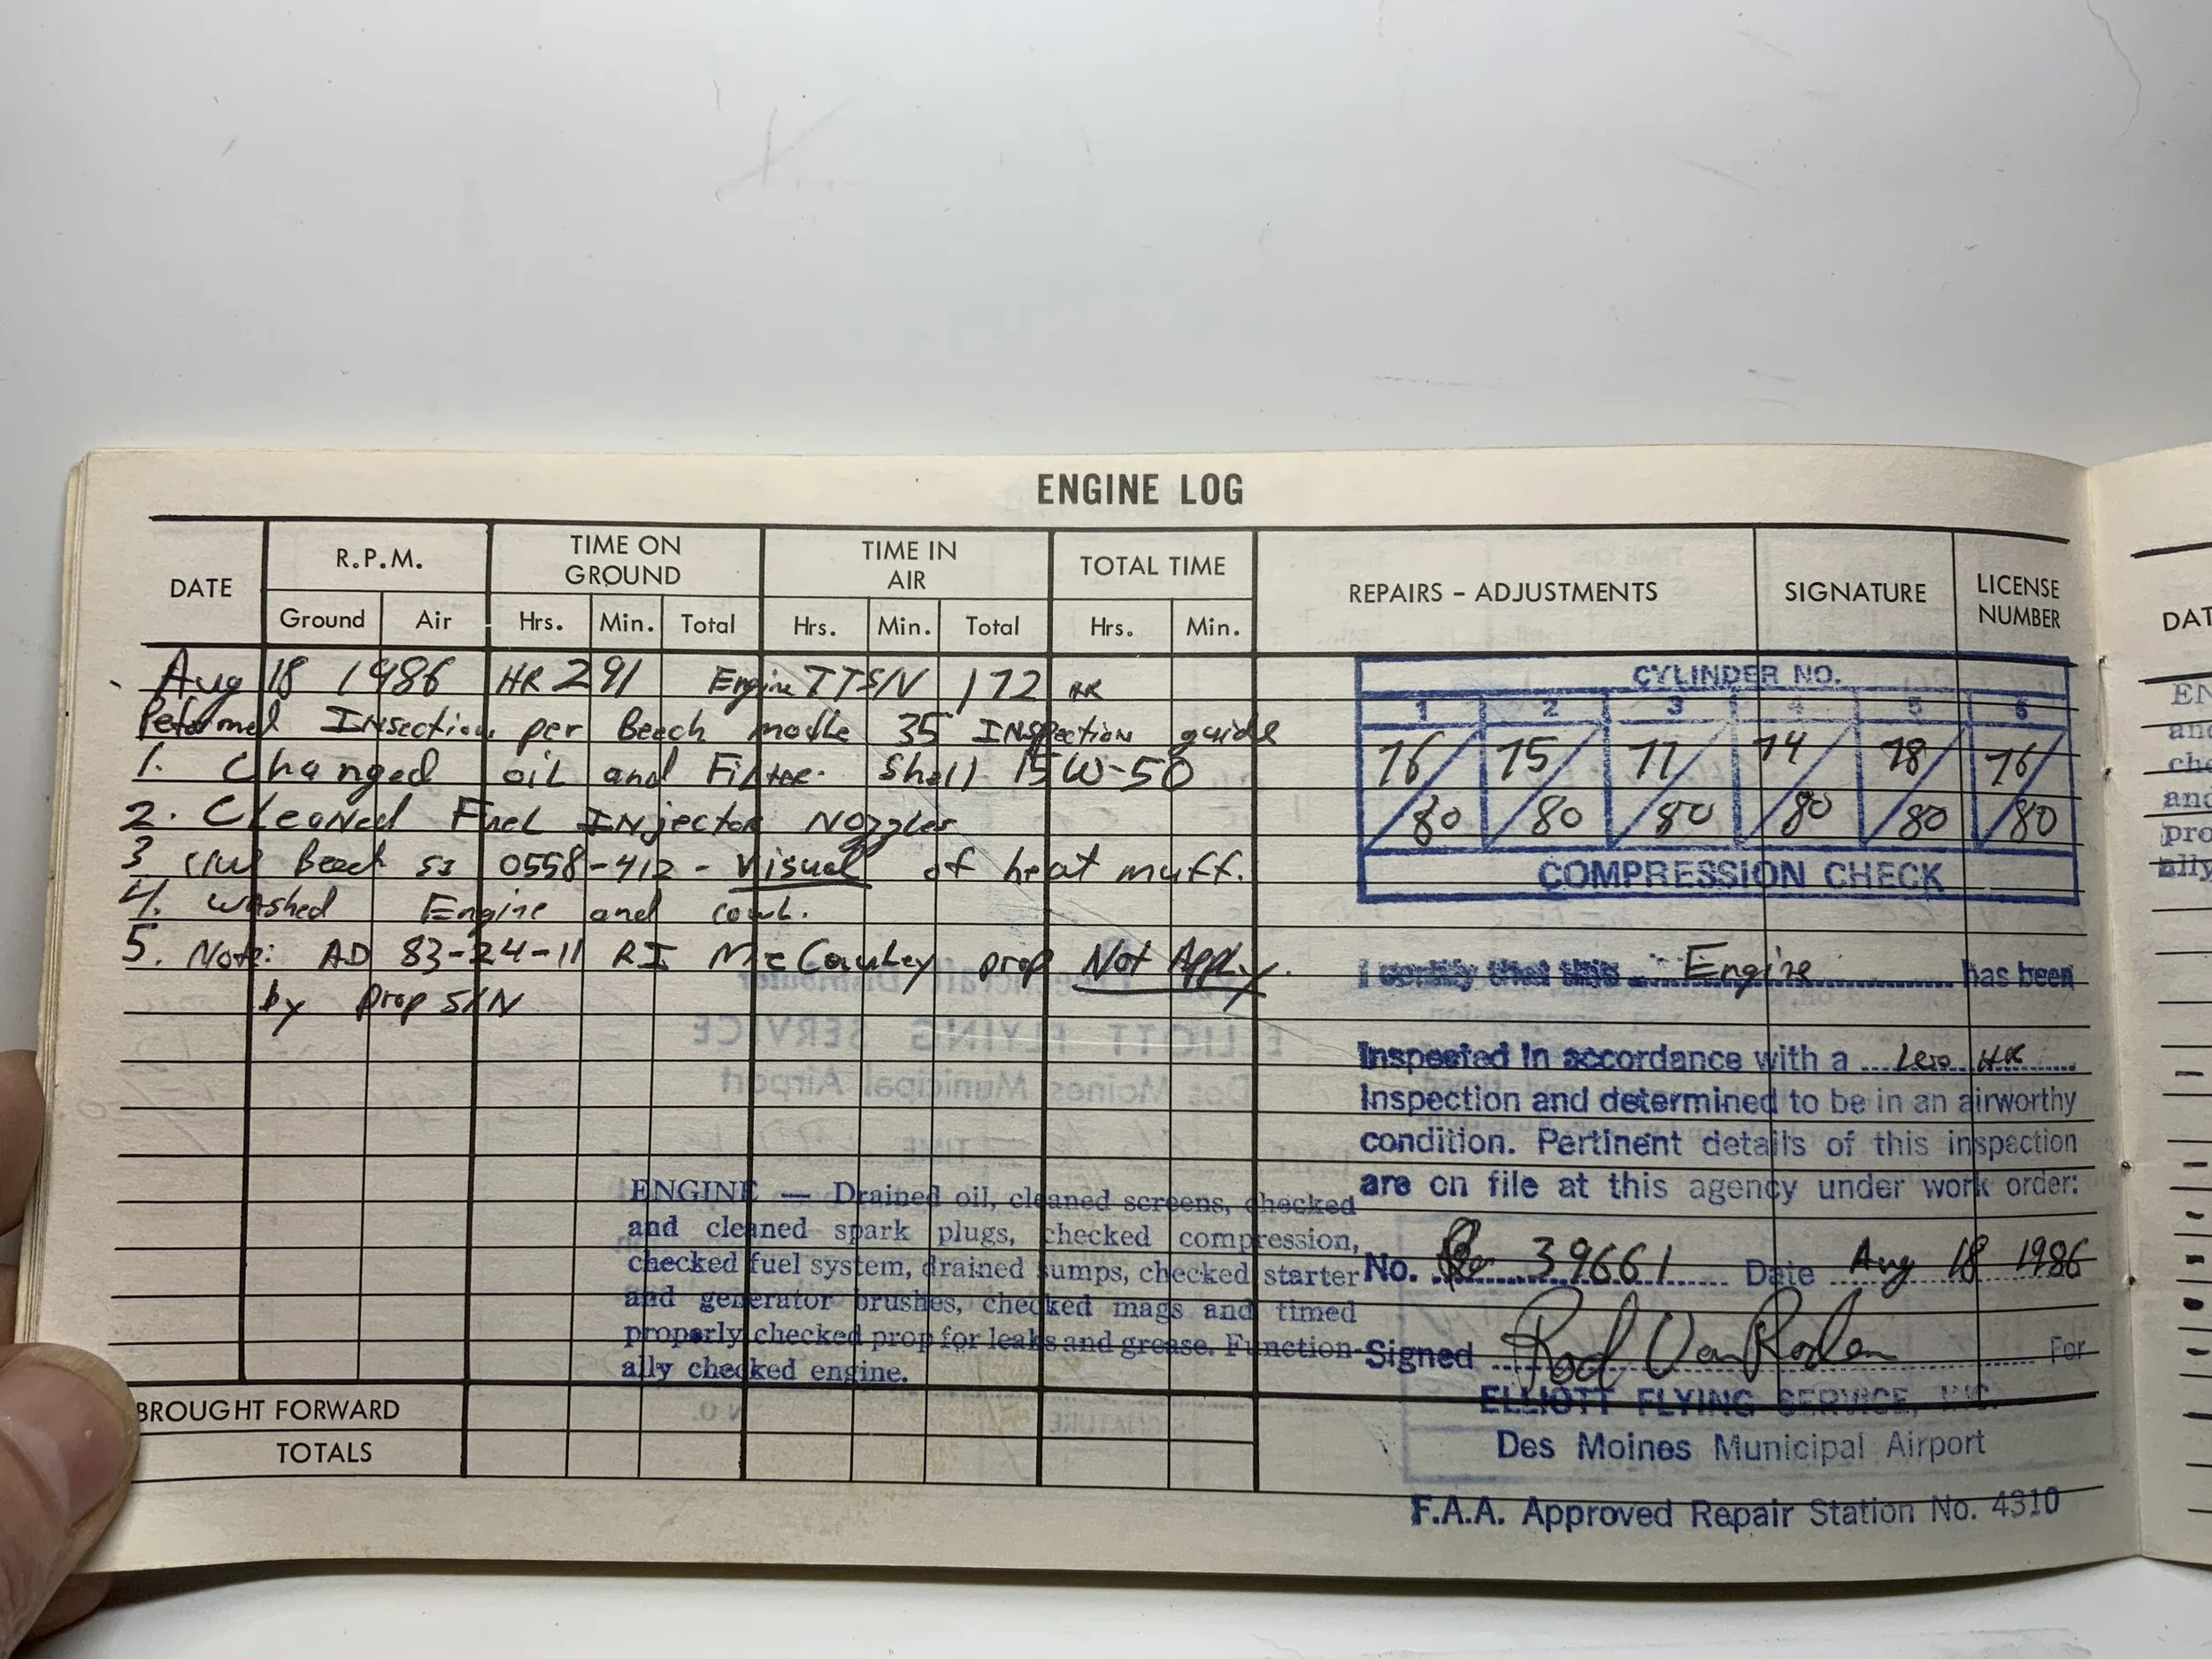 ENGINE LOG
DATE R.P.M. TIME ON GROUND TIME IN AIR TOTAL TIME REPAIRS – ADJUSTMENTS SIGNATURE LICENSE NUMBER
Ground Air Hrs. Min. Total Hrs. Min. Total Hrs. Min.
Aug 18 1986 HR 291 Engine TTSN 172 HR
Peformed Insection per Beech modle 35 Inspection guide
1. Changed oil and Filter. Shell 15W-50
2. Cleaned Fuel Injector Nozzles
3 C/W Beech SI 0558-412 - Visual of heat muff.
4. washed Engine and cowl.
5. Note: AD 83-24-11 R1 McCauley prop Not Apply.
by prop S/N
ENGINE — Drained oil, cleaned screens, checked
and cleaned spark plugs, checked compression,
checked fuel system, drained sumps, checked starter
and generator brushes, checked mags and timed
properly checked prop for leaks and grease. Function-
ally checked engine.
BROUGHT FORWARD
TOTALS
CYLINDER NO.
1 2 3 4 5 6
76/80 75/80 77/80 74/80 78/80 76/80
COMPRESSION CHECK
I certify that this Engine has been
Inspected in accordance with a HR
Inspection and determined to be in an airworthy
condition. Pertinent details of this inspection
are on file at this agency under work order:
No. 39661 Date Aug 18 1986
Signed Rod Van For
ELLIOTT FLYING SERVICE, INC.
Des Moines Municipal Airport
F.A.A. Approved Repair Station No. 4310
DAT
EN
and
che
and
pro
ally